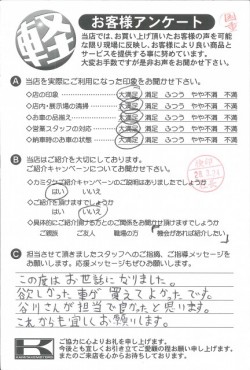 軽
お客様アンケート
当店では、お買い上げ頂いたお客様の声を可能
な限り現場に反映し、お客様により良い商品と
サービスを提供する事に努めています。
大変お手数ですが是非お声をお聞かせ下さい。
A 当店を実際にご利用になった印象をお聞かせ下さい。
◇店の印象 大満足 満足 ふつう やや不満 不満
◇店内・展示場の清掃 大満足 満足 ふつう やや不満 不満
◇お車の品揃え 大満足 満足 ふつう やや不満 不満
◇営業スタッフの対応 大満足 満足 ふつう やや不満 不満
◇納車時のお車の状態 大満足 満足 ふつう やや不満 不満
B 当店はご紹介を大切にしております。
ご紹介キャンペーンについてお聞かせ下さい。
◇カミタケご紹介キャンペーンのご説明はありましたでしょうか
はい いいえ
◇ご紹介を頂けますでしょうか
はい いいえ
◇具体的にご紹介頂ける方とのご関係をお聞かせ頂けますでしょうか
ご親族 ご友人 職場の方 機会があれば紹介したい
C 担当させて頂きましたスタッフへのご指摘、ご指導メッセージを
お願いします。応援メッセージもぜひお願いします。
この度はお世話になりました。
欲しかった車が買えてよかったです。
谷川さんが担当で良かったと思います。
これからも宜しくお願いします。
K
ご協力に心よりお礼を申し上げます。
今後とも宜しくお引き立てご愛顧の程お願い申し上げます。
またのご来店を心からお待ちしております。